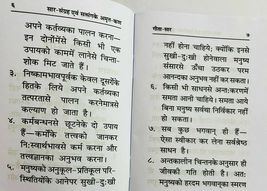 ६
सार-संग्रह एवं सत्संगके अमृत-कण
अपने कर्तव्यका पालन करना—
इन दोनोंमेंसे किसी भी एक
उपायको काममें लानेसे चिन्ता-
शोक मिट जाते हैं।
३. निष्कामभावपूर्वक केवल दूसरोंके
हितके लिये अपने कर्तव्यका
तत्परतासे पालन करनेमात्रसे
कल्याण हो जाता है।
४. कर्मबन्धनसे छूटनेके दो उपाय
हैं—कर्मोंके तत्त्वको जानकर
निःस्वार्थभावसे कर्म करना और
तत्त्वज्ञानका अनुभव करना।
५. मनुष्यको अनुकूल-प्रतिकूल परि-
स्थितियोंके आनेपर सुखी-दुःखी
गीता-सार
७
नहीं होना चाहिये; क्योंकि इनसे
सुखी-दुःखी होनेवाला मनुष्य
संसारसे ऊँचा उठकर परम
आनन्दका अनुभव नहीं कर सकता।
६. किसी भी साधनसे अन्तःकरणमें
समता आनी चाहिये। समता आये
बिना मनुष्य सर्वथा निर्विकार नहीं
हो सकता।
७. सब कुछ भगवान् ही हैं—
ऐसा स्वीकार कर लेना सर्वश्रेष्ठ
साधन है।
८. अन्तकालीन चिन्तनके अनुसार ही
जीवकी गति होती है। अतः
मनुष्यको हरदम भगवान्का स्मरण